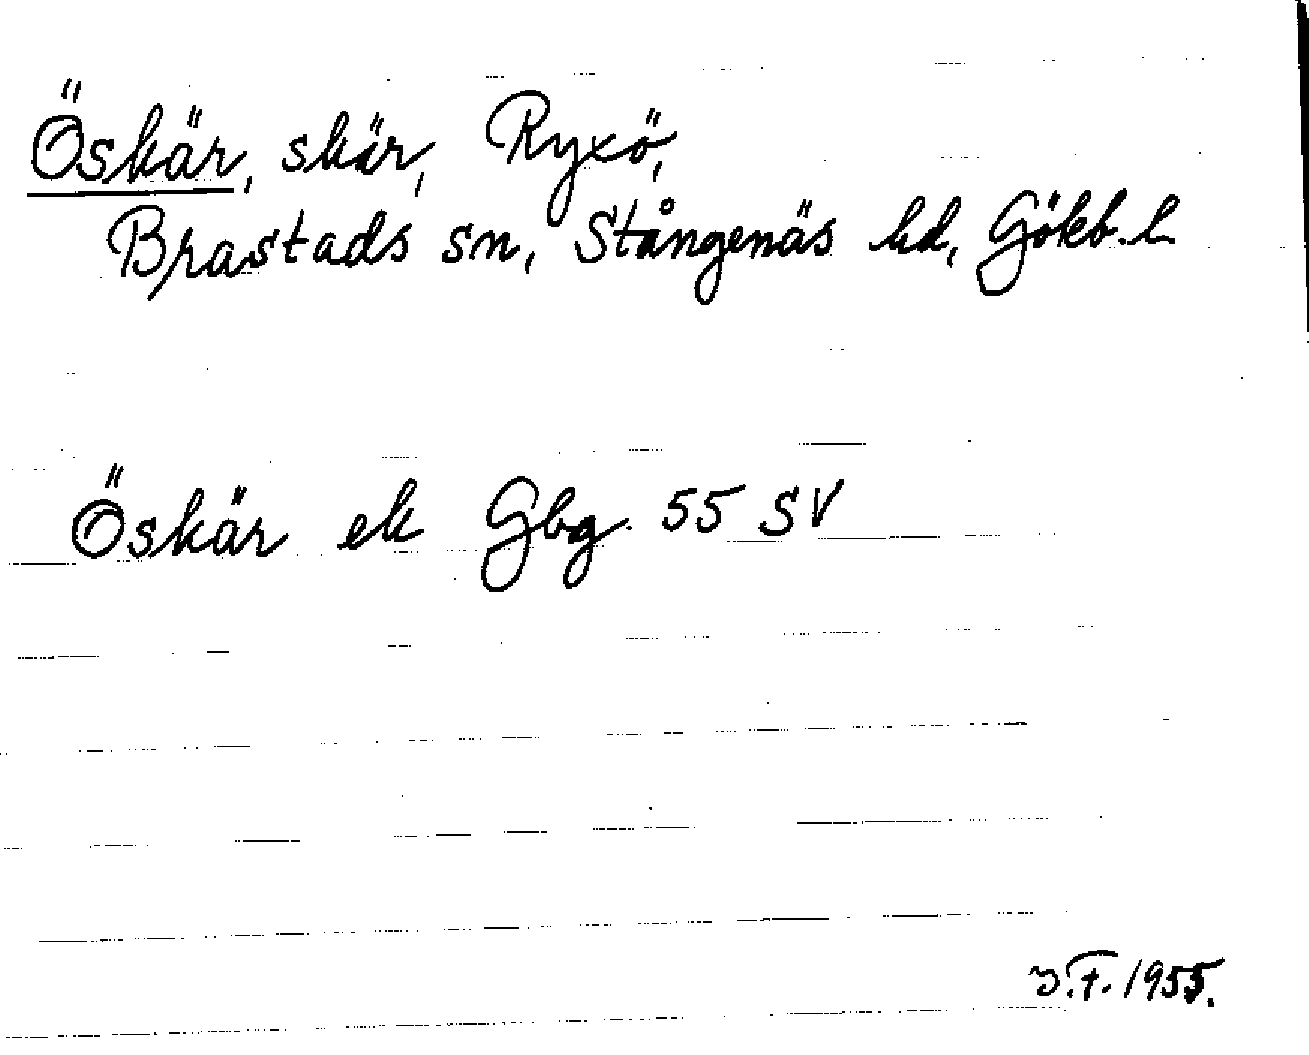 Öskär, skär, Ryxö,
Brastads sn, Stångenäs hd, Gökb. l.
Öskär ek Gbg 55 SV
F. 1955.